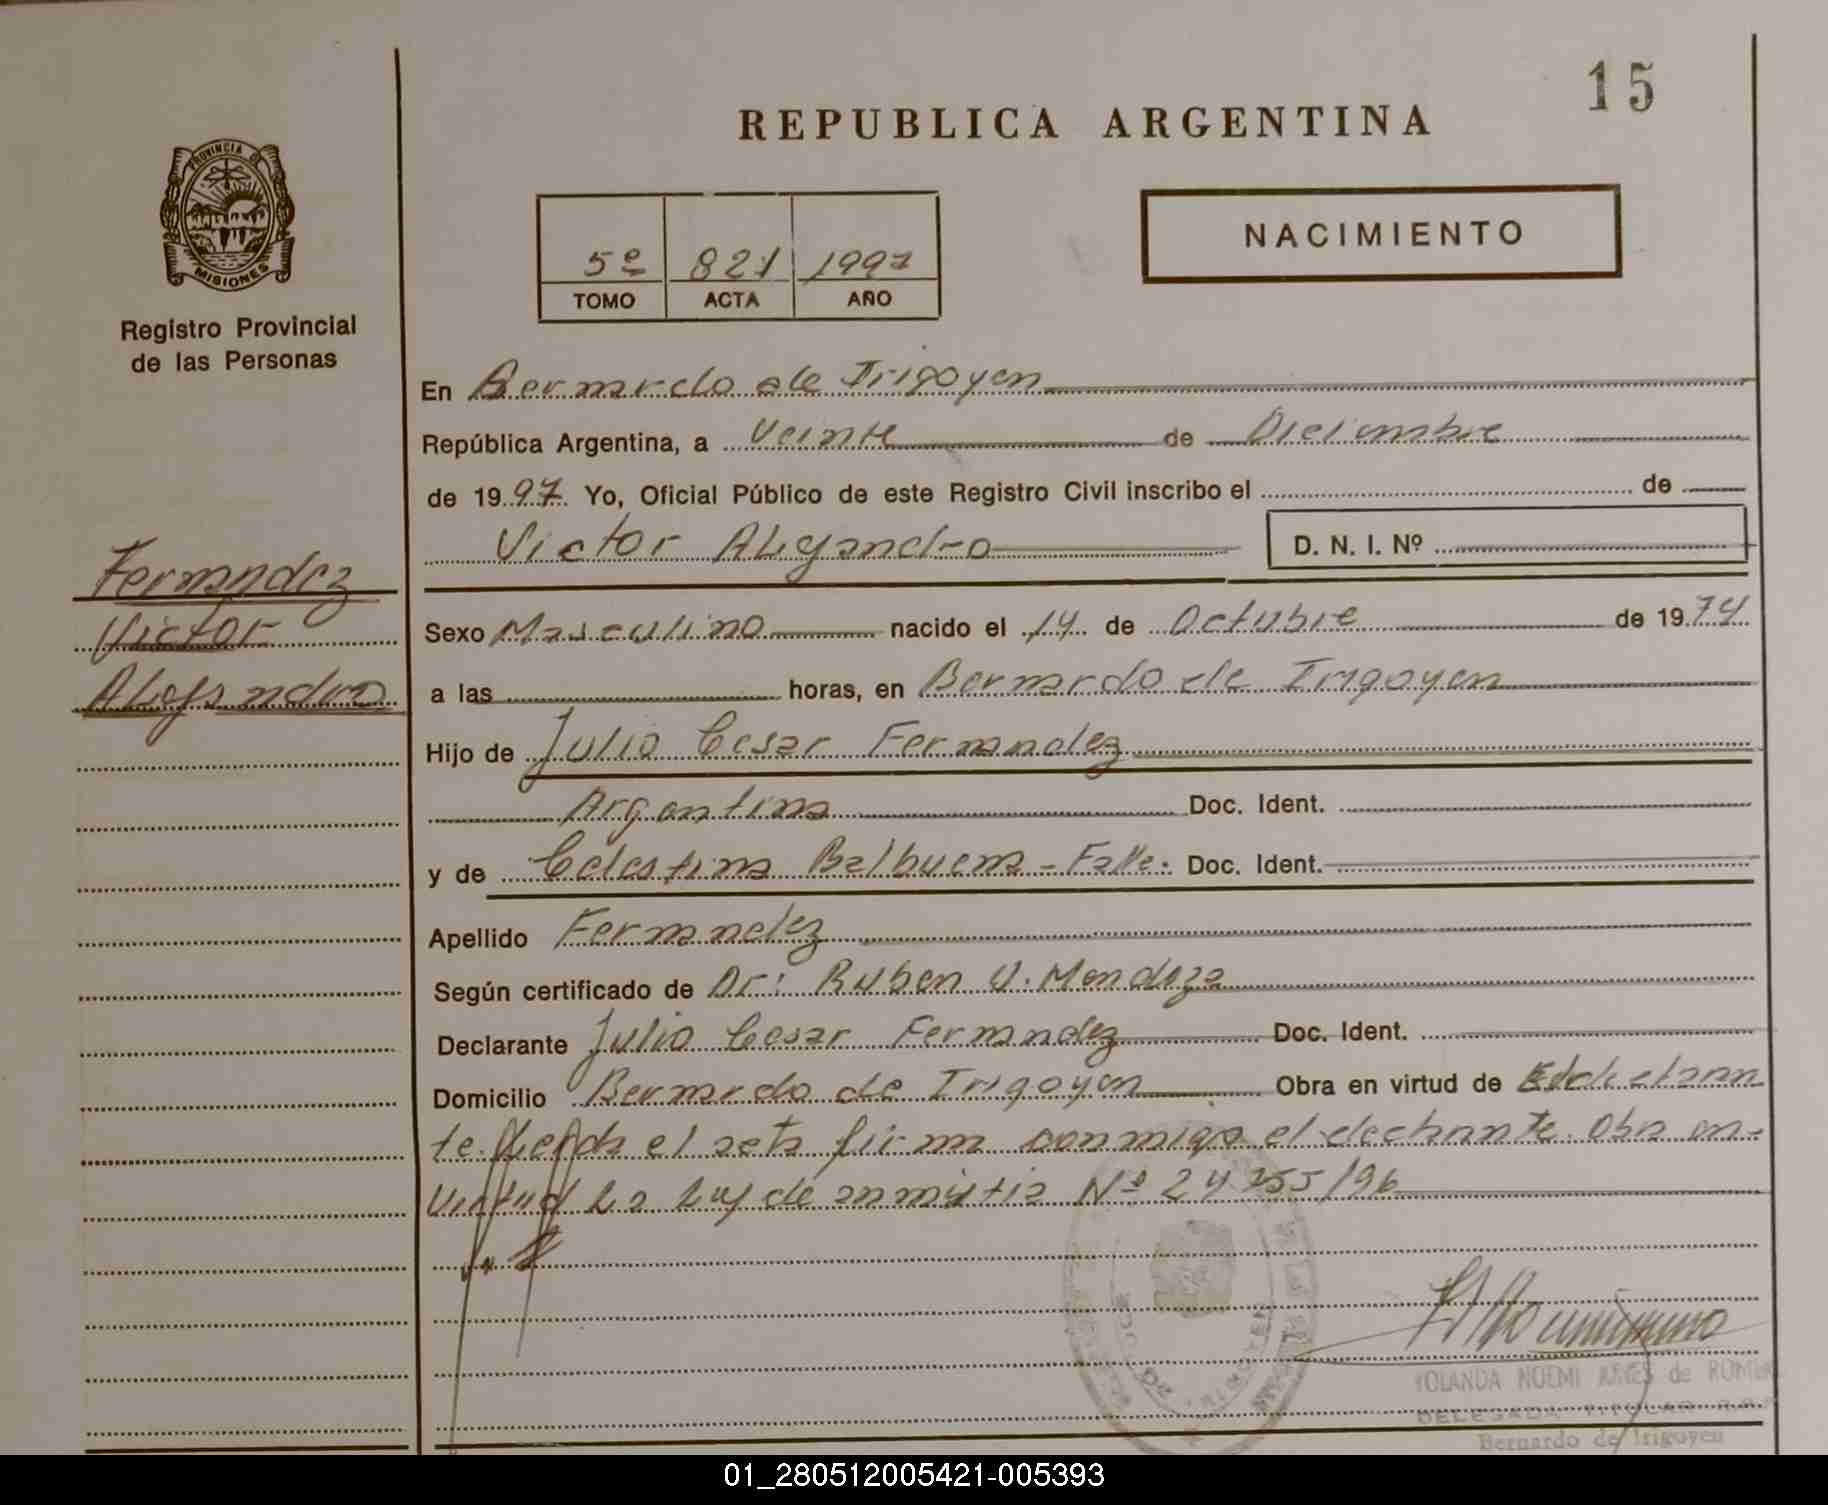 15
REPUBLICA ARGENTINA
PROVINCIA DE
MISIONES
Registro Provincial
de las Personas
NACIMIENTO
5º 821 1997
TOMO ACTA AÑO
En Bernardo de Irigoyen
República Argentina, a Veinte de Diciembre
de 1997 Yo, Oficial Público de este Registro Civil inscribo el de
Victor Alejandro D. N. I. Nº
Fernandez
Victor
Alejandro
Sexo Masculino nacido el 14 de Octubre de 1974
a las horas, en Bernardo de Irigoyen
Hijo de Julio Cesar Fernandez
Argentina Doc. Ident.
y de Celestina Balbuena - Falle. Doc. Ident.
Apellido Fernandez
Según certificado de Dr: Ruben V. Mendoza
Declarante Julio Cesar Fernandez Doc. Ident.
Domicilio Bernardo de Irigoyen Obra en virtud de
te. Leida el acta firma conmigo el declarante. Obra en
virtud la Ley de amnistia Nº 24755/96
YOLANDA NOEMI de
DELEGADA TITULAR
Bernardo de Irigoyen
01_280512005421-005393